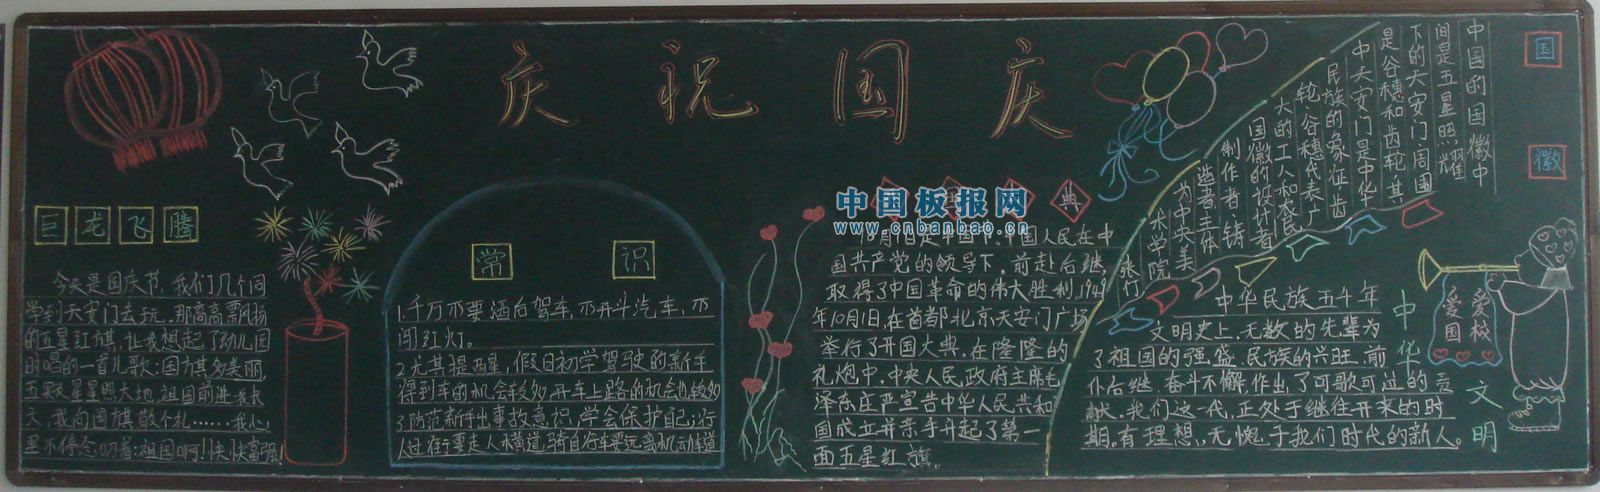 庆祝国庆
巨龙飞腾
今天是国庆节,我们几个同
学到天安门去玩,那高高飘扬
的五星红旗,让我想起了幼儿园
时唱的一首儿歌:国旗多美丽,
五颗星星照大地,祖国前进我长
大,我向国旗敬个礼……我心
里不停念叨着:祖国啊!快快富强!
常识
1.千万不要酒后驾车,不开斗汽车,不
闯红灯。
2.尤其提醒,假日初学驾驶的新手
得到车的机会较多,开车上路的机会也较多
了防范新手出事故意识,学会保护自己;行
人过街要走人行横道,骑自行车要远离机动车道
典
中国板报网
www.cnbanbao.cn
10月1日是中国节,中国人民在中
国共产党的领导下,前赴后继,
取得了中国革命的伟大胜利,1949
年10月1日,在首都北京天安门广场
举行了开国大典,在隆隆的
礼炮中,中央人民政府主席毛
泽东庄严宣告中华人民共和
国成立并亲手升起了第一
面五星红旗。
国徽
中国的国徽中
间是五星照耀
下的天安门,周围
是谷穗和齿轮,其
中天安门是中华
民族的象征,齿
轮谷穗代表广
大的工人和农民
国徽的设计者
制作者:铸
造者主体
为中央美
术学院
张仃
中华文明
中华民族五千年
文明史上,无数的先辈为
了祖国的强盛,民族的兴旺,前
仆后继,奋斗不懈,作出了可歌可泣的贡
献,我们这一代,正处于继往开来的时
期。有理想,无愧于我们时代的新人。
爱校
爱国